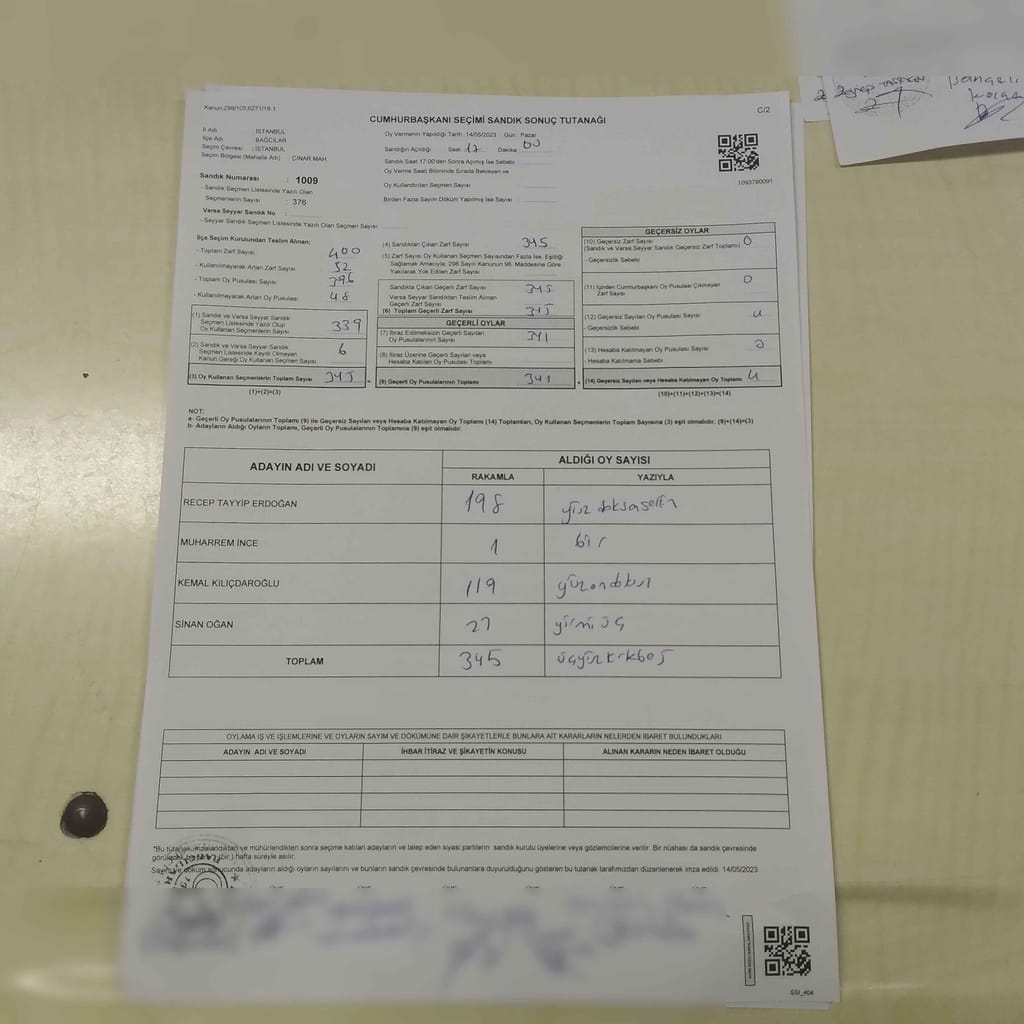 Kanun:298/105,6271/18-1
C/2
CUMHURBAŞKANI SEÇİMİ SANDIK SONUÇ TUTANAĞI
İl Adı : İSTANBUL
İlçe Adı : BAĞCILAR
Seçim Çevresi : İSTANBUL
Seçim Bölgesi (Mahalle Adı) : ÇINAR MAH.
Oy Vermenin Yapıldığı Tarih :14/05/2023 Gün : Pazar
Sandığın Açıldığı Saat : 17 Dakika 00
Sandık Saat 17:00'den Sonra Açılmış İse Sebebi
Oy Verme Saati Bitiminde Sırada Bekleyen ve
Oy Kullandırılan Seçmen Sayısı
Birden Fazla Sayım Döküm Yapılmış İse Sayısı
1093780091
Sandık Numarası : 1009
- Sandık Seçmen Listesinde Yazılı Olan
Seçmenlerin Sayısı : 376
Varsa Seyyar Sandık No :
- Seyyar Sandık Seçmen Listesinde Yazılı Olan Seçmen Sayısı
İlçe Seçim Kurulundan Teslim Alınan;
- Toplam Zarf Sayısı 400
- Kullanılmayarak Artan Zarf Sayısı 52
- Toplam Oy Pusulası Sayısı 396
- Kullanılmayarak Artan Oy Pusulası 48
(1) Sandık ve Varsa Seyyar Sandık
Seçmen Listesinde Yazılı Olup
Oy Kullanan Seçmenlerin Sayısı 339
(2) Sandık ve Varsa Seyyar Sandık
Seçmen Listesinde Kaydı Olmayan
Kanun Gereği Oy Kullanan Seçmen Sayısı 6
(3) Oy Kullanan Seçmenlerin Toplam Sayısı 345
(1)+(2)=(3)
(4) Sandıktan Çıkan Zarf Sayısı 345
(5) Zarf Sayısı Oy Kullanan Seçmen Sayısından Fazla İse, Eşitliği
Sağlamak Amacıyla; 298 Sayılı Kanunun 98. Maddesine Göre
Yakılarak Yok Edilen Zarf Sayısı
Sandıkta Çıkan Geçerli Zarf Sayısı 345
Varsa Seyyar Sandıktan Teslim Alınan
Geçerli Zarf Sayısı
(6) Toplam Geçerli Zarf Sayısı 345
GEÇERLİ OYLAR
(7) İtiraz Edilmeksizin Geçerli Sayılan
Oy Pusulalarının Sayısı 341
(8) İtiraz Üzerine Geçerli Sayılan veya
Hesaba Katılan Oy Pusulası Toplamı
(9) Geçerli Oy Pusulalarının Toplamı 341
GEÇERSİZ OYLAR
(10) Geçersiz Zarf Sayısı 0
(Sandık ve Varsa Seyyar Sandık Geçersiz Zarf Toplamı)
- Geçersizlik Sebebi
(11) İçinden Cumhurbaşkanı Oy Pusulası Çıkmayan 0
Zarf Sayısı
(12) Geçersiz Sayılan Oy Pusulası Sayısı 4
- Geçersizlik Sebebi
(13) Hesaba Katılmayan Oy Pusulası Sayısı
- Hesaba Katılmama Sebebi
(14) Geçersiz Sayılan veya Hesaba Katılmayan Oy Toplamı 4
(10)+(11)+(12)+(13)=(14)
NOT:
a- Geçerli Oy Pusulalarının Toplamı (9) ile Geçersiz Sayılan veya Hesaba Katılmayan Oy Toplamı (14) Toplamları, Oy Kullanan Seçmenlerin Toplam Sayısına (3) eşit olmalıdır. (9)+(14)=(3)
b- Adayların Aldığı Oyların Toplamı, Geçerli Oy Pusulalarının Toplamına (9) eşit olmalıdır.
ADAYIN ADI VE SOYADI
ALDIĞI OY SAYISI
RAKAMLA YAZIYLA
RECEP TAYYİP ERDOĞAN 198 yüz doksan sekiz
MUHARREM İNCE 1 bir
KEMAL KILIÇDAROĞLU 119 yüzondokuz
SİNAN OĞAN 27 yirmi üç
TOPLAM 345 üçyüzkırkbeş
OYLAMA İŞ VE İŞLEMLERİNE VE OYLARIN SAYIM VE DÖKÜMÜNE DAİR ŞİKAYETLERLE BUNLARA AİT KARARLARIN NELERDEN İBARET BULUNDUKLARI
ADAYIN ADI VE SOYADI
İHBAR İTİRAZ VE ŞİKAYETİN KONUSU
ALINAN KARARIN NEDEN İBARET OLDUĞU
*Bu tutanak imzalandıktan ve mühürlendikten sonra seçime katılan adayların ve talep eden siyasi partilerin sandık kurulu üyelerine veya gözlemcilerine verilir. Bir nüshası da sandık çevresinde
görülecek bir yere (bir) hafta süreyle asılır.
Sayım ve döküm sonucunda adayların aldığı oyların sayılarını ve bunların sandık çevresinde bulunanlara duyurulduğunu gösteren bu tutanak tarafımızdan düzenlenerek imza edildi. 14/05/2023
SSI_404